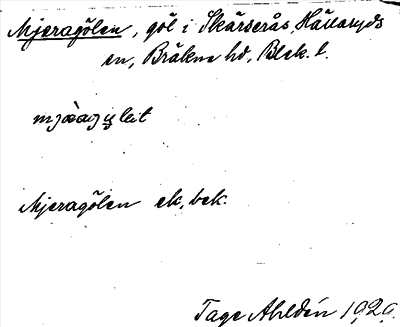 Mjeragölen, göl i Skärserås, Hällaryds
sn, Bräkne hd, Blek. l.
Mjeragölen ek, bek.
Tage Ahldén 1929.